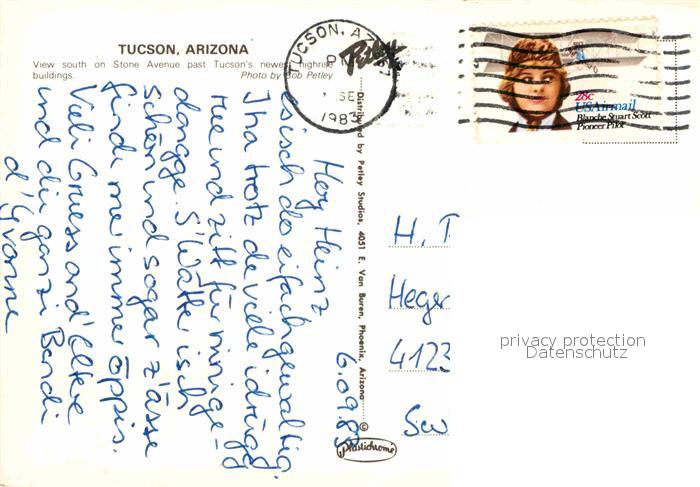 TUCSON, ARIZONA
View south on Stone Avenue past Tucson's newest highrise
buildings. Photo by Bob Petley
TUCSON, AZ
PM
SEP
1983
Petley
28c
USAirmail
Blanche Stuart Scott
Pioneer Pilot
Distributed by Petley Studios, 4051 E. Van Buren, Phoenix, Arizona
©
Plastichrome
6.09.83
Hoy Heinz
esisch do eifach gewaltig.
I ha trotz de viele idrügg
rue und zitt für minige
dangge. S'Wätter isch
schön und sogar z'ässe
finde me immer öppis.
Vieli Grüess and' Eltere
und die ganzi Bandi
d'Yvonne
H. T
Heger
4123
Sw
privacy protection
Datenschutz